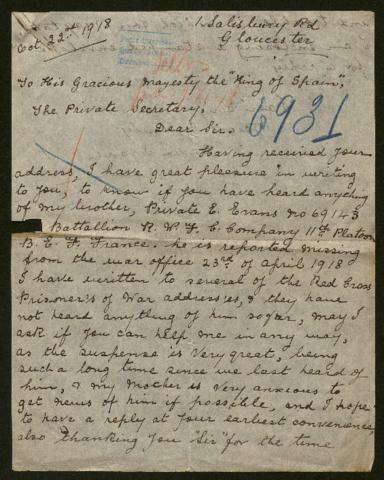 1 Salisbury Rd
Oct. 22nd 1918
Gloucester
To His Gracious Mayesty the "King of Spain",
The Private Secretary,
6931
Dear Sir.
Having received your
address, I have great pleasure in writing
to you, to know if you have heard anything
of my brother, Private E. Evans no 69143
Battallion R. W. F. C. Company 11th Platoon
B. E. F. France. he is reported missing
from the war office 23rd of April 1918
I have written to several of the Red Cross
Prisoner's of War addresses, & they have
not heard anything of him so far, may I
ask if you can help me in any way,
as the suspense is very great, being
such a long time since we last heard of
him, & my mother is very anxious to
get news of him if possible, and I hope
to have a reply at your earliest convenience,
also thanking you "Sir" for the time